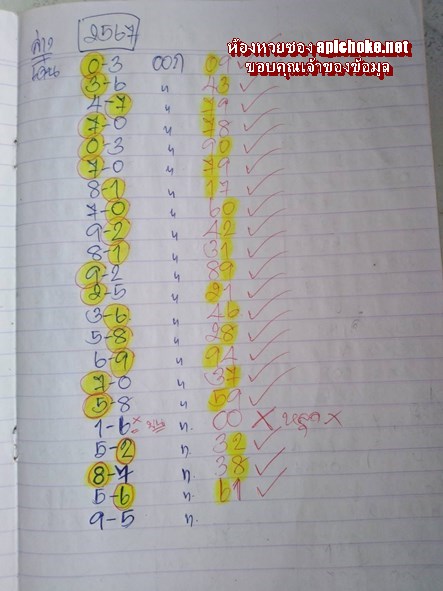 ล่าง 2567
ห้องหวยซอง apichoke.net
ขอบคุณเจ้าของข้อมูล
0-3 ออก 0
3-6 " 43
4-7 " 79
7-0 " 78
0-3 " 90
7-0 " 79
8-1 " 17
7-0 " 60
9-2 " 42
8-1 " 31
9-2 " 89
2-5 " 21
3-6 " 46
5-8 " 28
6-9 " 94
7-0 " 37
5-8 " 59
1-6 × ก. 00 × หลุด ×
5-2 ก. 32
8-7 ก. 38
5-6 ก. 61
9-5 ก.